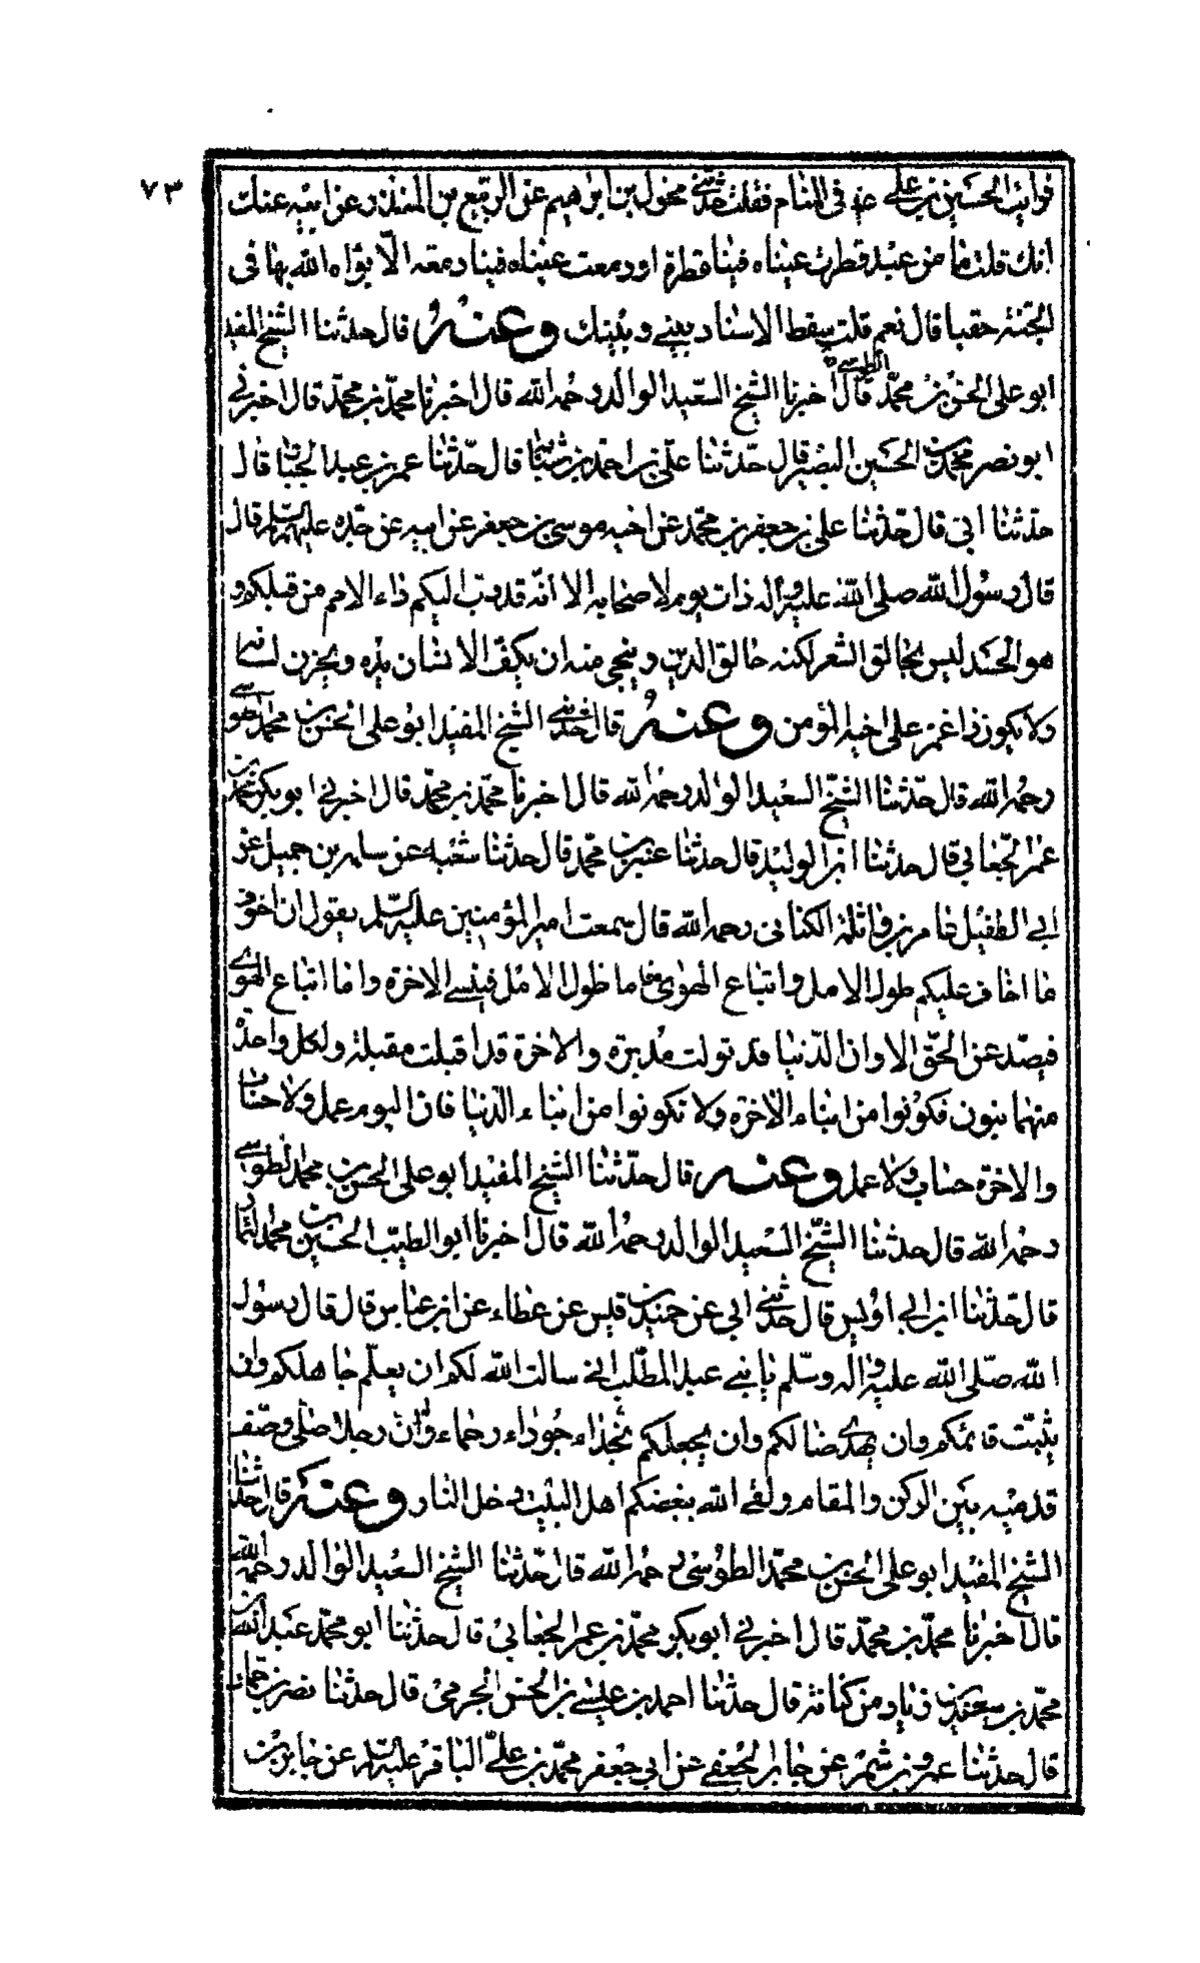 ٧٣
فرایت الحسین بن علی ع فی المنام فقلت حدثنی مخول بن ابراهیم عن الربیع بن المنذر عن ابیه عنك
انك قلت ما من عبد قطرت عیناه فینا قطرة او دمعت عیناه فینا دمعة الّا بوّاه الله بها فی
الجنة حقبا قال نعم قلت سقط الاسناد بینی و بینك وعنه قال حدثنا الشیخ المفید
ابو علی الحسن بن محمّد الطوسی قال اخبرنا الشیخ السّعید الوالد رحمه الله قال اخبرنا محمّد بن محمّد قال اخبرنی
ابو نصر محمد بن الحسین البصیر قال حدّثنا علی بن احمد بن قال حدّثنا عمر بن عبد الجبار قال
حدثنا ابی قال حدّثنا علی بن جعفر بن محمّد عن اخیه موسی بن جعفر عن ابیه عن جدّه علیهم السلم قال
قال رسول الله صلی الله علیه واله ذات یوم لاصحابه الا انّه قد دبّ الیكم داء الامم من قبلكم و
هو الحسد لیس بحالق الشعر لكنه حالق الدین و ینجی منه ان یكفّ الانسان یده و یخزن لسانه
ولا یكون ذا غمز علی اخیه المؤمن وعنه قال حدثنی الشیخ المفید ابو علی الحسن بن محمد الطوسی
رحمه الله قال حدّثنا الشیخ السعید الوالد رحمه الله قال اخبرنا محمّد بن محمّد قال اخبرنی ابو بكر محمد بن
عمر الجعابی قال حدثنا ابن الولید قال حدثنا عنبر بن محمّد قال حدثنا شعبة عن سلمه بن جمیل عن
ابی الطفیل عامر بن واثلة الكنانی رحمه الله قال سمعت امیر المؤمنین علیه السّلم یقول ان اخوف
ما اخاف علیكم طول الامل واتباع الهوی فاما طول الامل فینسی الاخرة واما اتباع الهوی
فیصدّ عن الحقّ الا وان الدّنیا قد تولت مدبرة والاخرة قد اقبلت مقبلة ولكل واحدة
منهما بنون فكونوا من ابناء الاخرة ولا تكونوا من ابناء الدّنیا فان الیوم عمل ولا حساب
والاخرة حساب ولا عمل وعنه قال حدّثنا الشیخ المفید ابو علی الحسن بن محمد الطوسی
رحمه الله قال حدثنا الشّیخ السّعید الوالد رحمه الله قال اخبرنا ابو الطیّب الحسین بن محمد التمار
قال حدّثنا ابن ابی اویس قال حدّثنی ابی عن حمید بن قیس عن عطاء عن ابن عباس قال قال رسول
الله صّلی الله علیه واله وسلّم یا بنی عبد المطّلب انی سالت الله لكم ان یعلّم جاهلكم وان
یثبّت قائمكم وان یهدی ضالكم وان یجعلكم نجداء جوداء رحماء ولو ان رجلا صلی وصّف
قدمیه بین الركن والمقام ولقی الله ببغضكم اهل البیت دخل النار وعنه قال حدثنا
الشیخ المفید ابو علی الحسن بن محمّد الطوسی رحمه الله قال حدّثنا الشیخ السعید الوالد رحمه الله
قال اخبرنا محمّد بن محمّد قال اخبرنی ابو بكر محمّد بن عمر الجعابی قال حدثنا ابو محمّد عبد الله بن
محمّد بن سعید بن زیاد من كنانة قال حدثنا احمد بن عیسی بن الحسن الجرمی قال حدثنا نصر بن حماد
قال حدثنا عمرو بن شمر عن جابر الجعفی عن ابی جعفر محمّد بن علیّ الباقر علیه السلم عن جابر بن